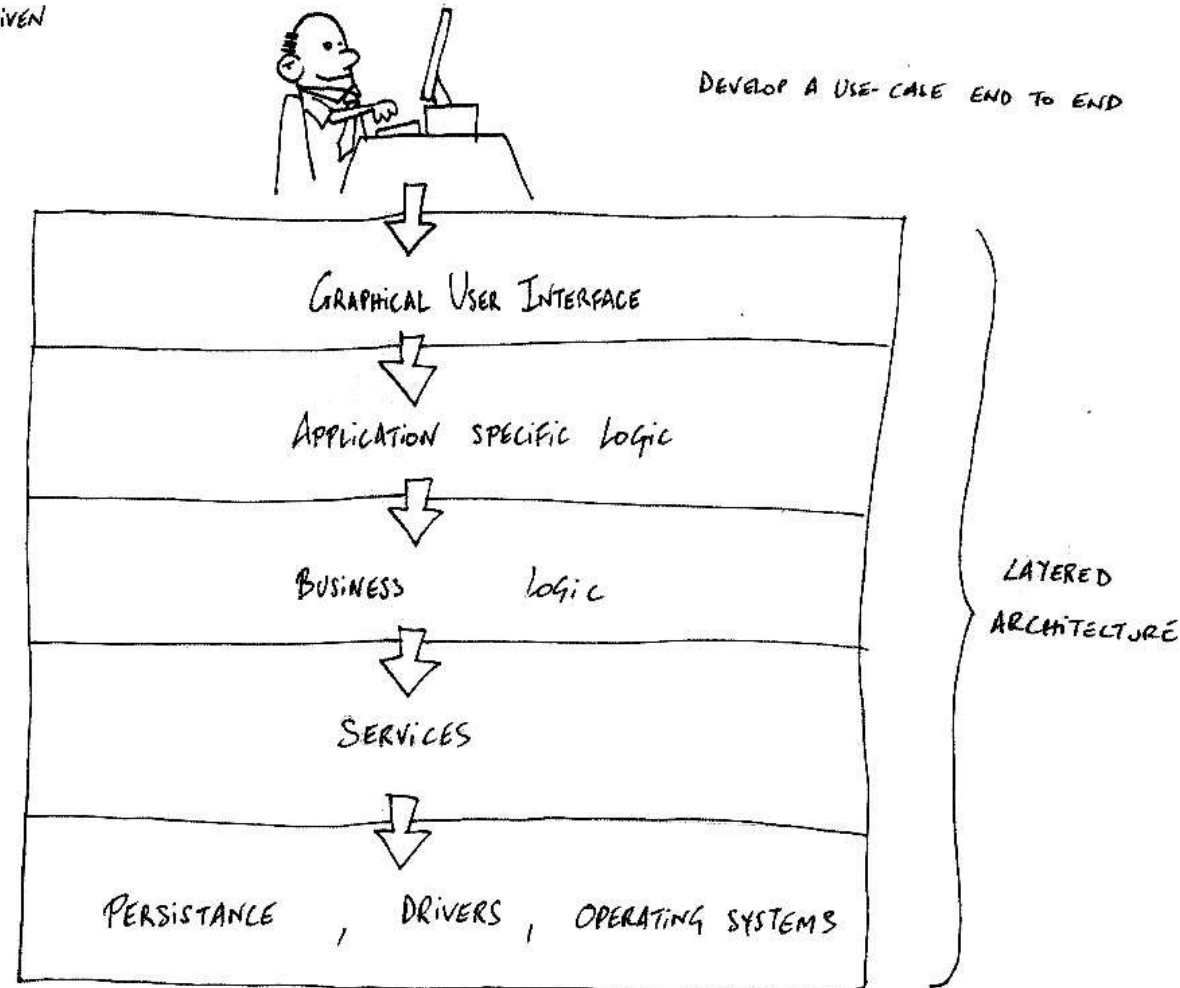 iVEN
DEVELOP A USE-CASE END TO END
GRAPHICAL USER INTERFACE
APPLICATION SPECIFIC LOGIC
BUSINESS LOGIC
SERVICES
PERSISTANCE , DRIVERS , OPERATING SYSTEMS
LAYERED
ARCHITECTURE